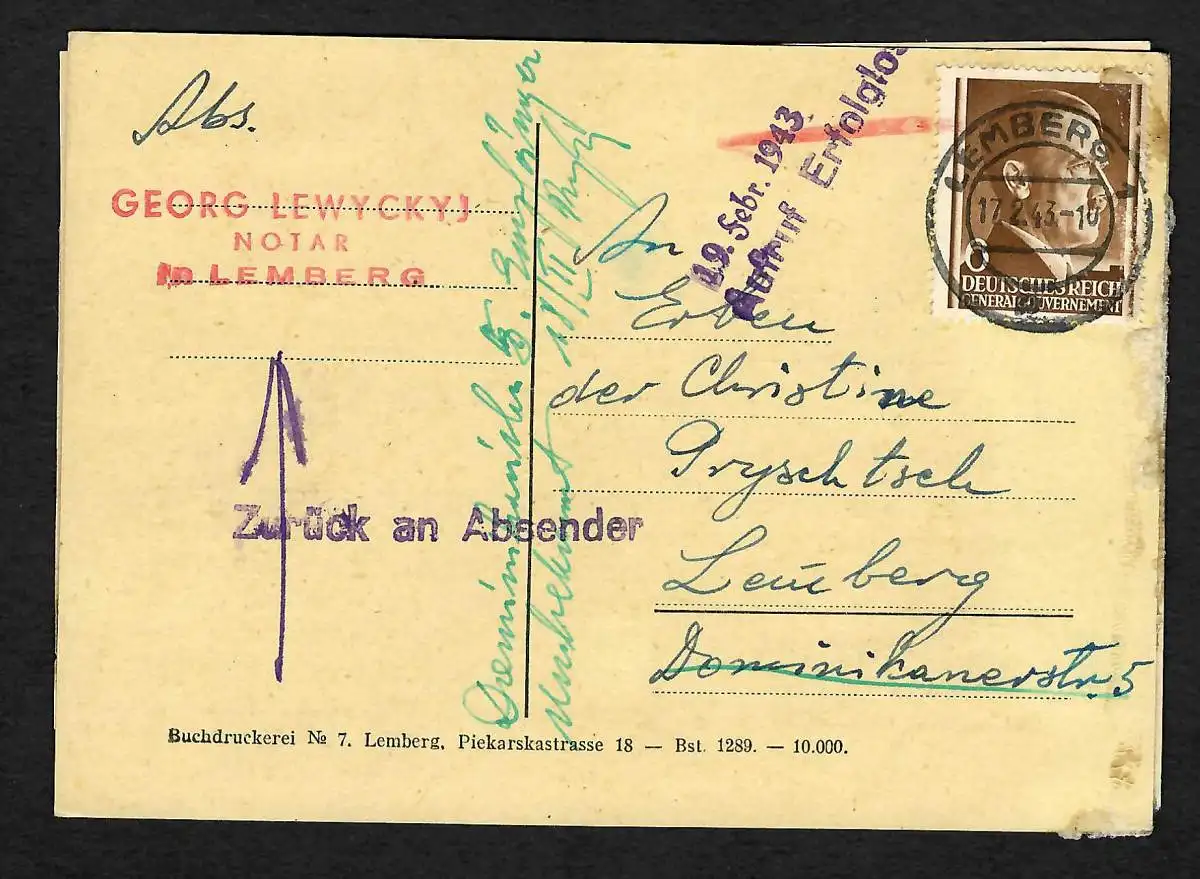 Abs.
GEORG LEWYCKYJ
NOTAR
in LEMBERG
19. Febr. 1943
Aufruf Erfolglos
LEMBERG 1
17.2.43-10
6
DEUTSCHES REICH
GENERALGOUVERNEMENT
An
Erben
der Christine
Pryschtsch
Lemberg
Dominikanerstr. 5
Zurück an Absender
5. Empfänger
unbekannt 18/II
Buchdruckerei № 7. Lemberg, Piekarskastrasse 18 — Bst. 1289. — 10.000.